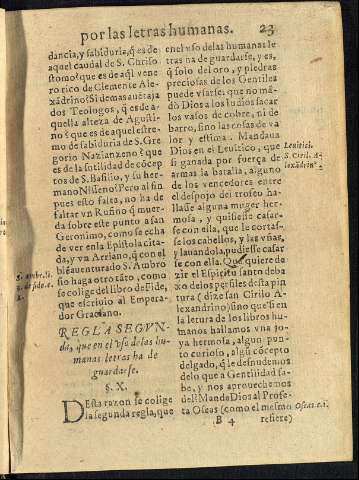 por las letras humanas. 23
dancia, y sabiduria, q̃ es de
aquel caudal de S. Chriso
stomo? que es de aq̃l vene
ro rico de Clemente Ale-
xãdrino? Si de mas auẽtaja
dos Teologos, q̃ es de a-
quella alteza de Agusti-
no? que es de aquel estre-
mo de sabiduria de S. Gre
gorio Nazianzeno? que
es de la sotilidad de cõcep
tos de S. Basilio, y su her-
mano Nisseno? Pero al fin
pues esto falta, no ha de
faltar vn Rufino q̃ muer-
da sobre este punto a san
Geronimo, como se echa
de ver en la Epistola cita-
da, y vn Arriano, q̃ con el
bieauenturado S. Ambro
sio haga otro tãto, como
se colige del libro de Fide,
que escriuio al Empera-
dor Graciano.
REGLA SEGVN-
da, que en el vso de las hu-
manas letras ha de
guardarse.
§. X.
DEsta razon se colige
la segunda regla, que
S. Ambr. li.
2. de fide. c.
en el vso de las humanas le
tras ha de guardarse, y es,
q̃ solo del oro, y piedras
preciosas de los Gentiles
puede vsarse: que no mã-
dò Dios a los Iudios sacar
los vasos de cobre, ni de
barro, sino las cosas de va
lor y estima. Mandaua
Dios en el Leuitico, que
si ganada por fuerça de
armas la batalla, alguno
de los vencedores entre
el despojo del trofeo ha-
llasse alguna muger her-
mosa, y quisiesse casar-
se con ella, que le cortas-
se los cabellos, y las vñas,
y lauandola, pudiesse casar
se con ella. Que quiere de
zir el Espiritu santo deba
xo de los perfiles desta pin
tura (dize san Cirilo A-
lexandrino) sino que si en
la letura de los libros hu-
manos hallamos vna jo-
ya hermosa, algun pun-
to curioso, algũ cõcepto
delgado, q̃ le desnudemos
de lo que a Gentilidad sa-
be, y nos aprouechemos
del: Manda Dios al Profe-
ta Oseas (como el mesmo
Leuitici.
S. Ciril. A-
lexãdrin°
Oseas c. 1.
B 4
refiere)